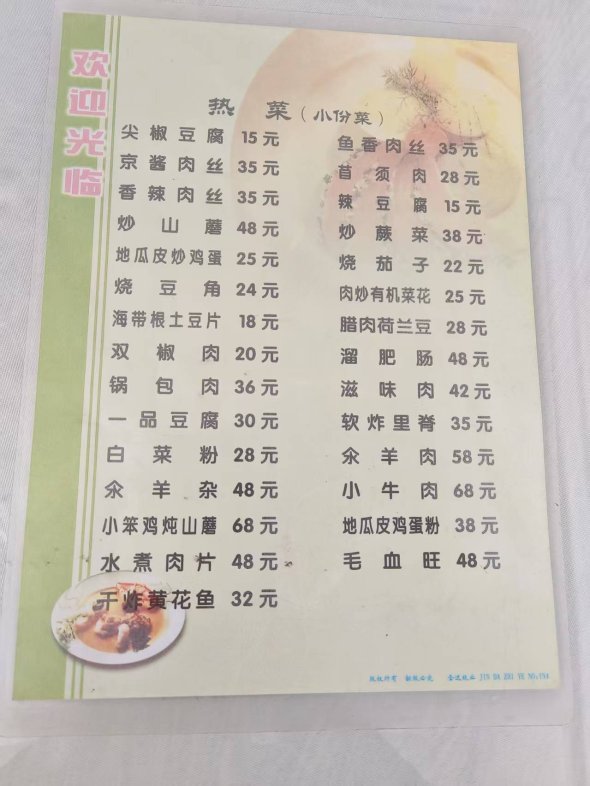 欢迎光临
热 菜（小份菜）
尖椒豆腐 15元
京酱肉丝 35元
香辣肉丝 35元
炒山蘑 48元
地瓜皮炒鸡蛋 25元
烧豆角 24元
海带根土豆片 18元
双椒肉 20元
锅包肉 36元
一品豆腐 30元
白菜粉 28元
汆羊杂 48元
小笨鸡炖山蘑 68元
水煮肉片 48元
干炸黄花鱼 32元
鱼香肉丝 35元
苜须肉 28元
辣豆腐 15元
炒蕨菜 38元
烧茄子 22元
肉炒有机菜花 25元
腊肉荷兰豆 28元
溜肥肠 48元
滋味肉 42元
软炸里脊 35元
汆羊肉 58元
小牛肉 68元
地瓜皮鸡蛋粉 38元
毛血旺 48元
版权所有 翻版必究